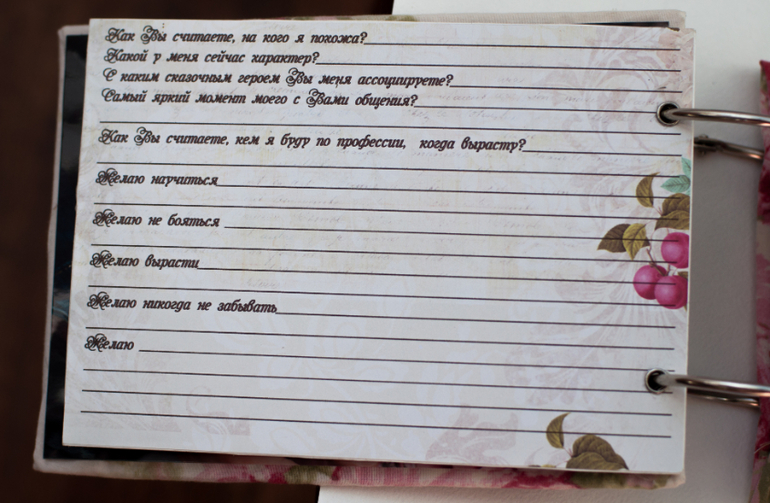 Как Вы считаете, на кого я похожа?
Какой у меня сейчас характер?
С каким сказочным героем Вы меня ассоциируете?
Самый яркий момент моего с Вами общения?
Как Вы считаете, кем я буду по профессии, когда вырасту?
Желаю научиться
Желаю не бояться
Желаю вырасти
Желаю никогда не забывать
Желаю